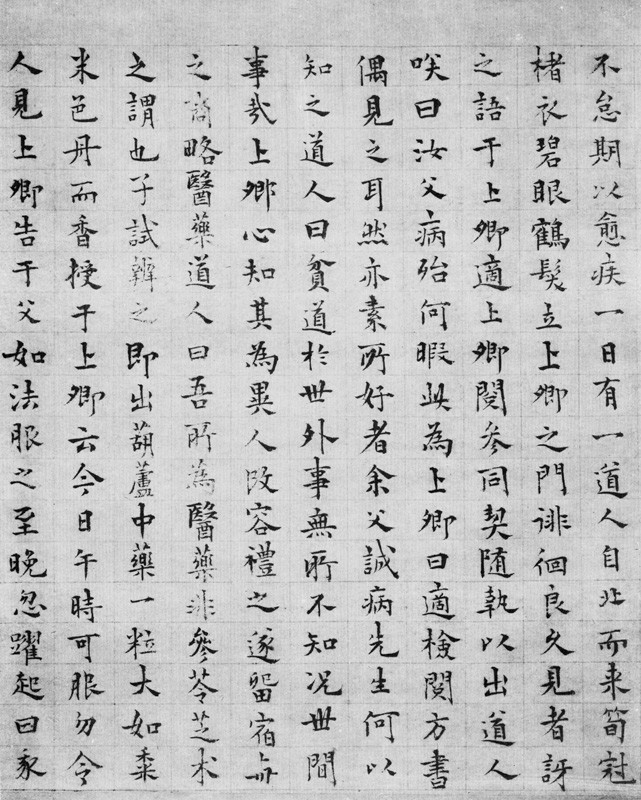 不怠期以愈疾一日有一道人自北而来筍冠
楮衣碧眼鶴髮立上卿之門誹徊良久見者訝
之語于上卿適上卿閱参同契随執以出道人
唉曰汝父病殆何暇此為上卿曰適檢閱方書
偶見之耳然亦素所好者余父誠病先生何以
知之道人曰貧道於世外事無所不知况世間
事哉上卿心知其為異人改容禮之遂留宿與
之商略醫藥道人曰吾所為醫藥非參苓芝术
之謂也子試辨之即出葫蘆中藥一粒大如黍
米色丹而香授于上卿云今日午時可服勿令
人見上卿告于父如法服之至晚忽躍起曰我